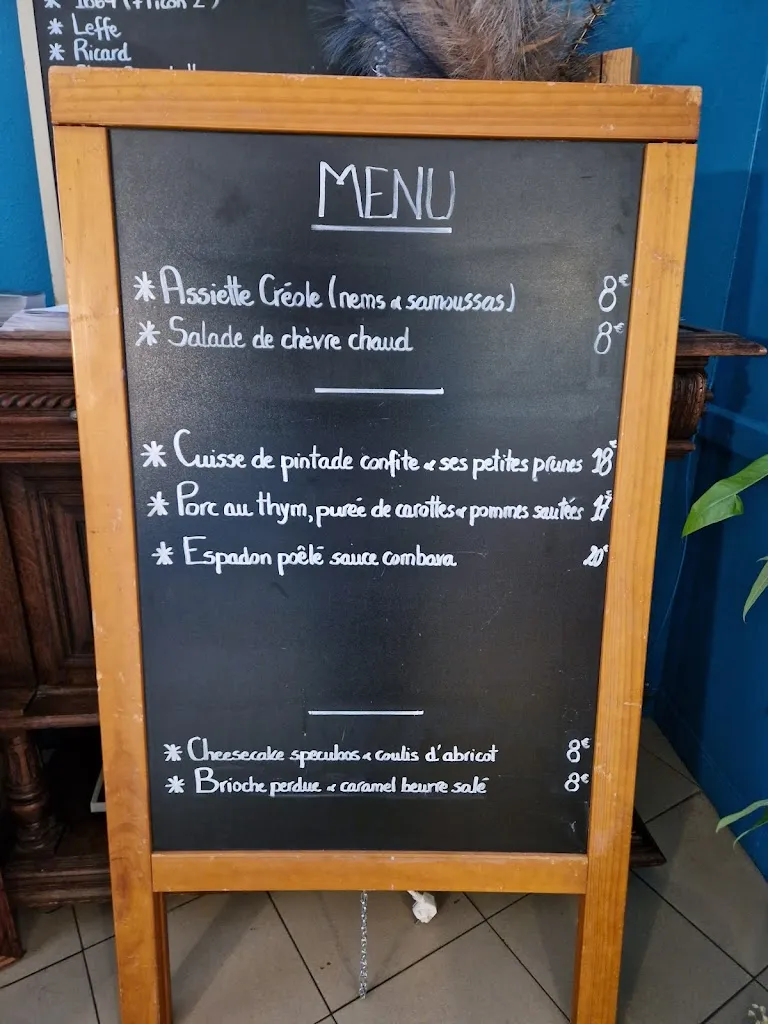 * 1664 (+ Picon 2 )
* Leffe
* Ricard
MENU
* Assiette Créole (nems & samoussas) 8€
* Salade de chèvre chaud 8€
* Cuisse de pintade confite & ses petites prunes 18€
* Porc au thym, purée de carottes & pommes sautées 17€
* Espadon poêlé sauce combava 20€
* Cheesecake speculoos & coulis d'abricot 8€
* Brioche perdue & caramel beurre salé 8€